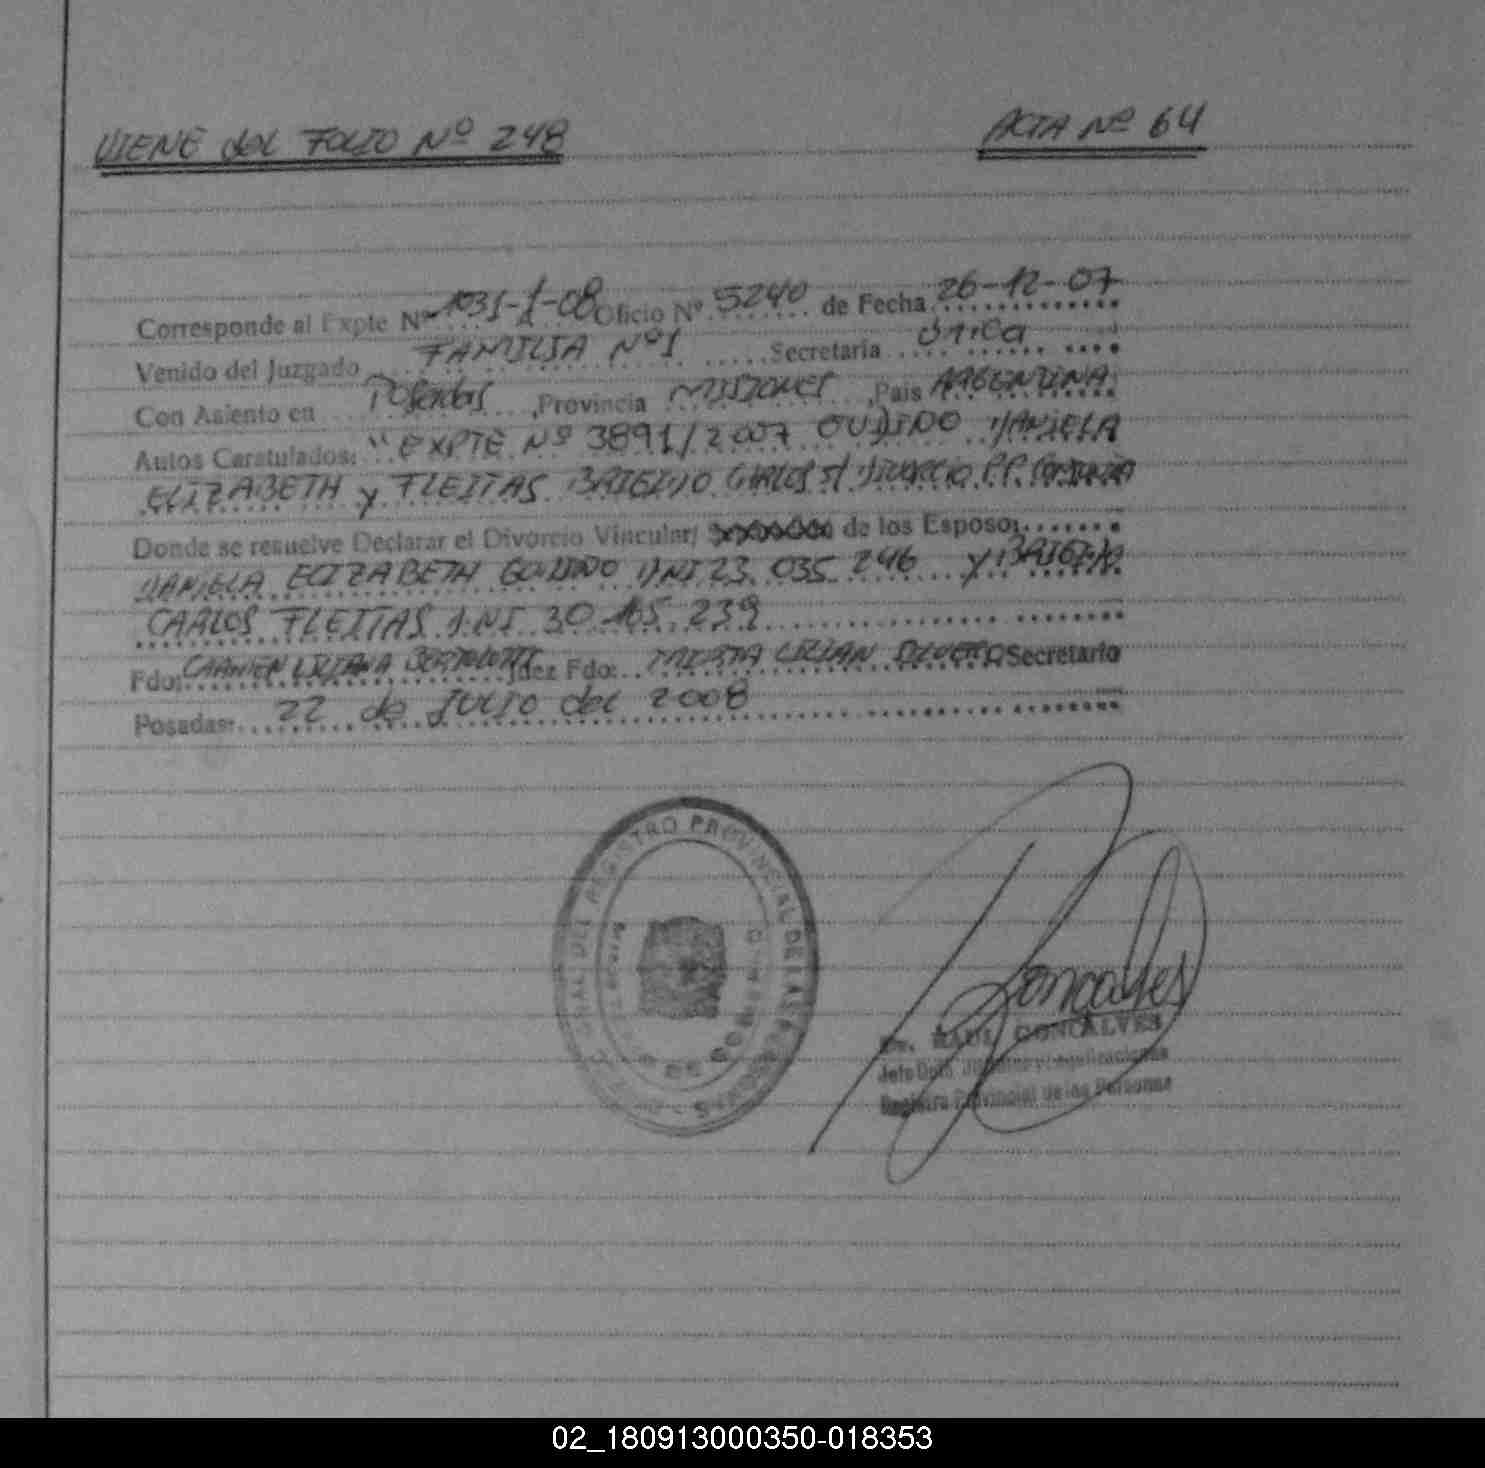 VIENE del FOLIO Nº 248
ACTA Nº 64
Corresponde al Expte Nº 1031-1-08 Oficio Nº 5240 de Fecha 26-12-07
Venido del Juzgado FAMILIA Nº1 Secretaria Única
Con Asiento en Posadas, Provincia MISIONES, Pais ARGENTINA
Autos Caratulados: "EXPTE Nº 3891/2007 DANIELA
ELIZABETH y FLEITAS CARLOS S/ DIVORCIO P.P. CONJUNTA
Donde se resuelve Declarar el Divorcio Vincular/ de los Esposo:
DANIELA ELIZABETH DNI 23.035.246 y
CARLOS FLEITAS DNI 30.165.239
Fdo: CARMEN LILIANA BERTOLOTTI Juez Fdo: LILIAN Secretario
Posadas: 22 de JULIO del 2008
REGISTRO PROVINCIAL DE LAS PERSONAS
MISIONES
Goncalves
Dr. RAUL GONCALVES
Jefe Dpto. y Legalizaciones
Registro Provincial de las Personas
02_180913000350-018353